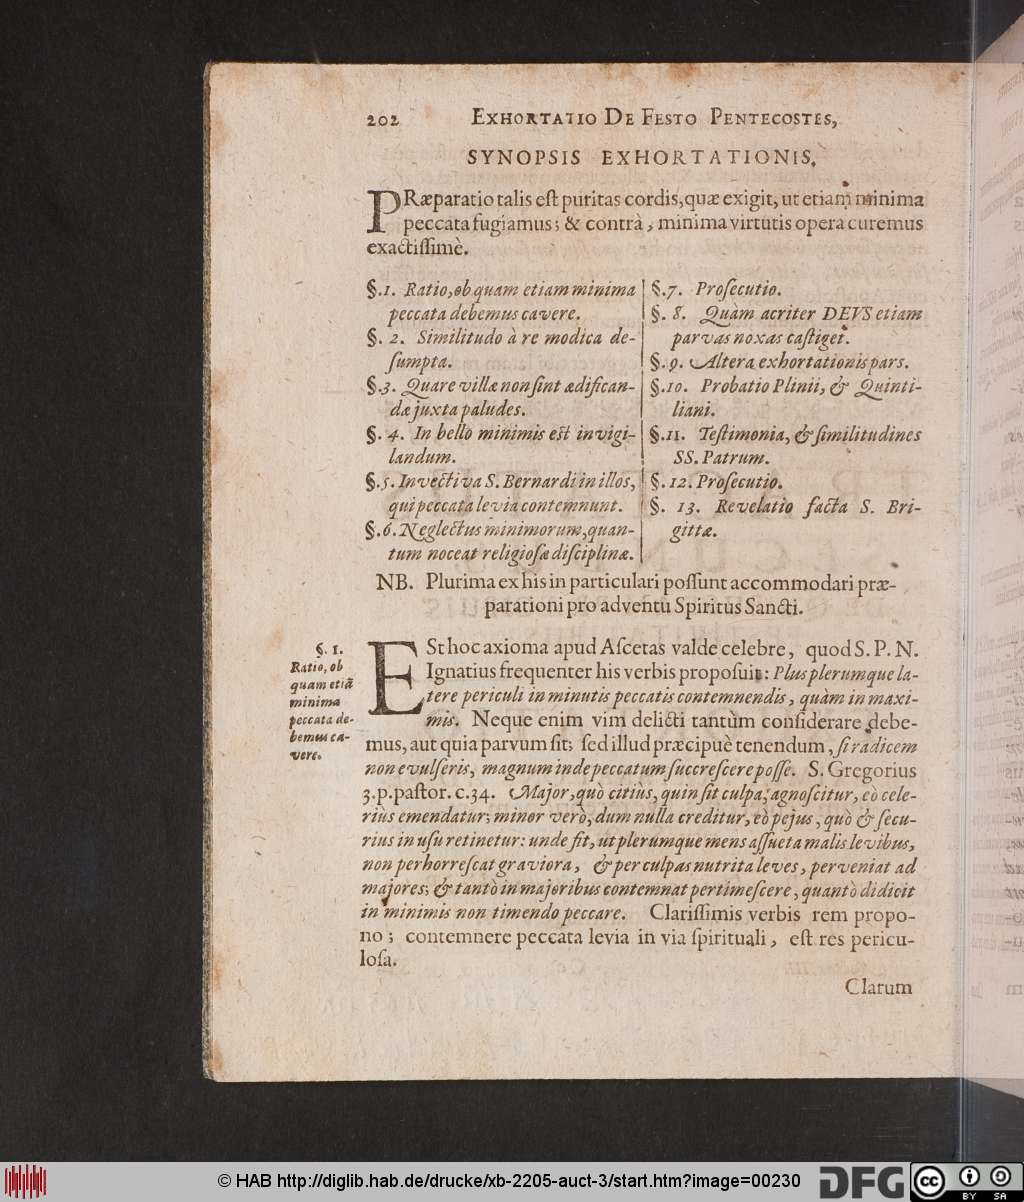 202 EXHORTATIO DE FESTO PENTECOSTES,
SYNOPSIS EXHORTATIONIS.
PRæparatio talis eſt puritas cordis, quæ exigit, ut etiam minima
peccata fugiamus; & contrà, minima virtutis opera curemus
exactiſſimè.
§.1. Ratio, ob quam etiam minima
peccata debemus cavere.
§. 2. Similitudo à re modica de-
ſumpta.
§.3. Quare villæ non ſint ædifican-
dæ juxta paludes.
§. 4. In bello minimis eſt invigi-
landum.
§.5. Invectiva S. Bernardi in illos,
qui peccata levia contemnunt.
§.6. Neglectus minimorum, quan-
tum noceat religioſæ diſciplinæ.
§.7. Proſecutio.
§. 8. Quàm acriter DEVS etiam
parvas noxas caſtiget.
§.9. Altera exhortationis pars.
§.10. Probatio Plinii, & Quinti-
liani.
§.11. Teſtimonia, & ſimilitudines
SS. Patrum.
§.12. Proſecutio.
§. 13. Revelatio facta S. Bri-
gittæ.
NB. Plurima ex his in particulari poſſunt accommodari præ-
parationi pro adventu Spiritus Sancti.
§. 1.
Ratio, ob
quam etiã
minima
peccata de-
bemus ca-
vere.
ESt hoc axioma apud Aſcetas valde celebre, quod S. P. N.
Ignatius frequenter his verbis propoſuit: Plus plerumque la-
tere periculi in minutis peccatis contemnendis, quàm in maxi-
mis. Neque enim vim delicti tantùm conſiderare debe-
mus, aut quia parvum ſit; ſed illud præcipuè tenendum, ſi radicem
non evulſeris, magnum inde peccatum ſuccreſcere poſſe. S. Gregorius
3.p.paſtor. c.34. Major, quò citiùs, quin ſit culpa, agnoſcitur, eò cele-
riùs emendatur; minor verò, dum nulla creditur, eò pejus, quò & ſecu-
rius in uſu retinetur: unde fit, ut plerumque mens aſſueta malis levibus,
non perhorreſcat graviora, & per culpas nutrita leves, perveniat ad
majores; & tantò in majoribus contemnat pertimeſcere, quantò didicit
in minimis non timendo peccare. Clariſſimis verbis rem propo-
no; contemnere peccata levia in via ſpirituali, eſt res pericu-
loſa.
Clarum
© HAB http://diglib.hab.de/drucke/xb-2205-auct-3/start.htm?image=00230
DFG cc BY SA